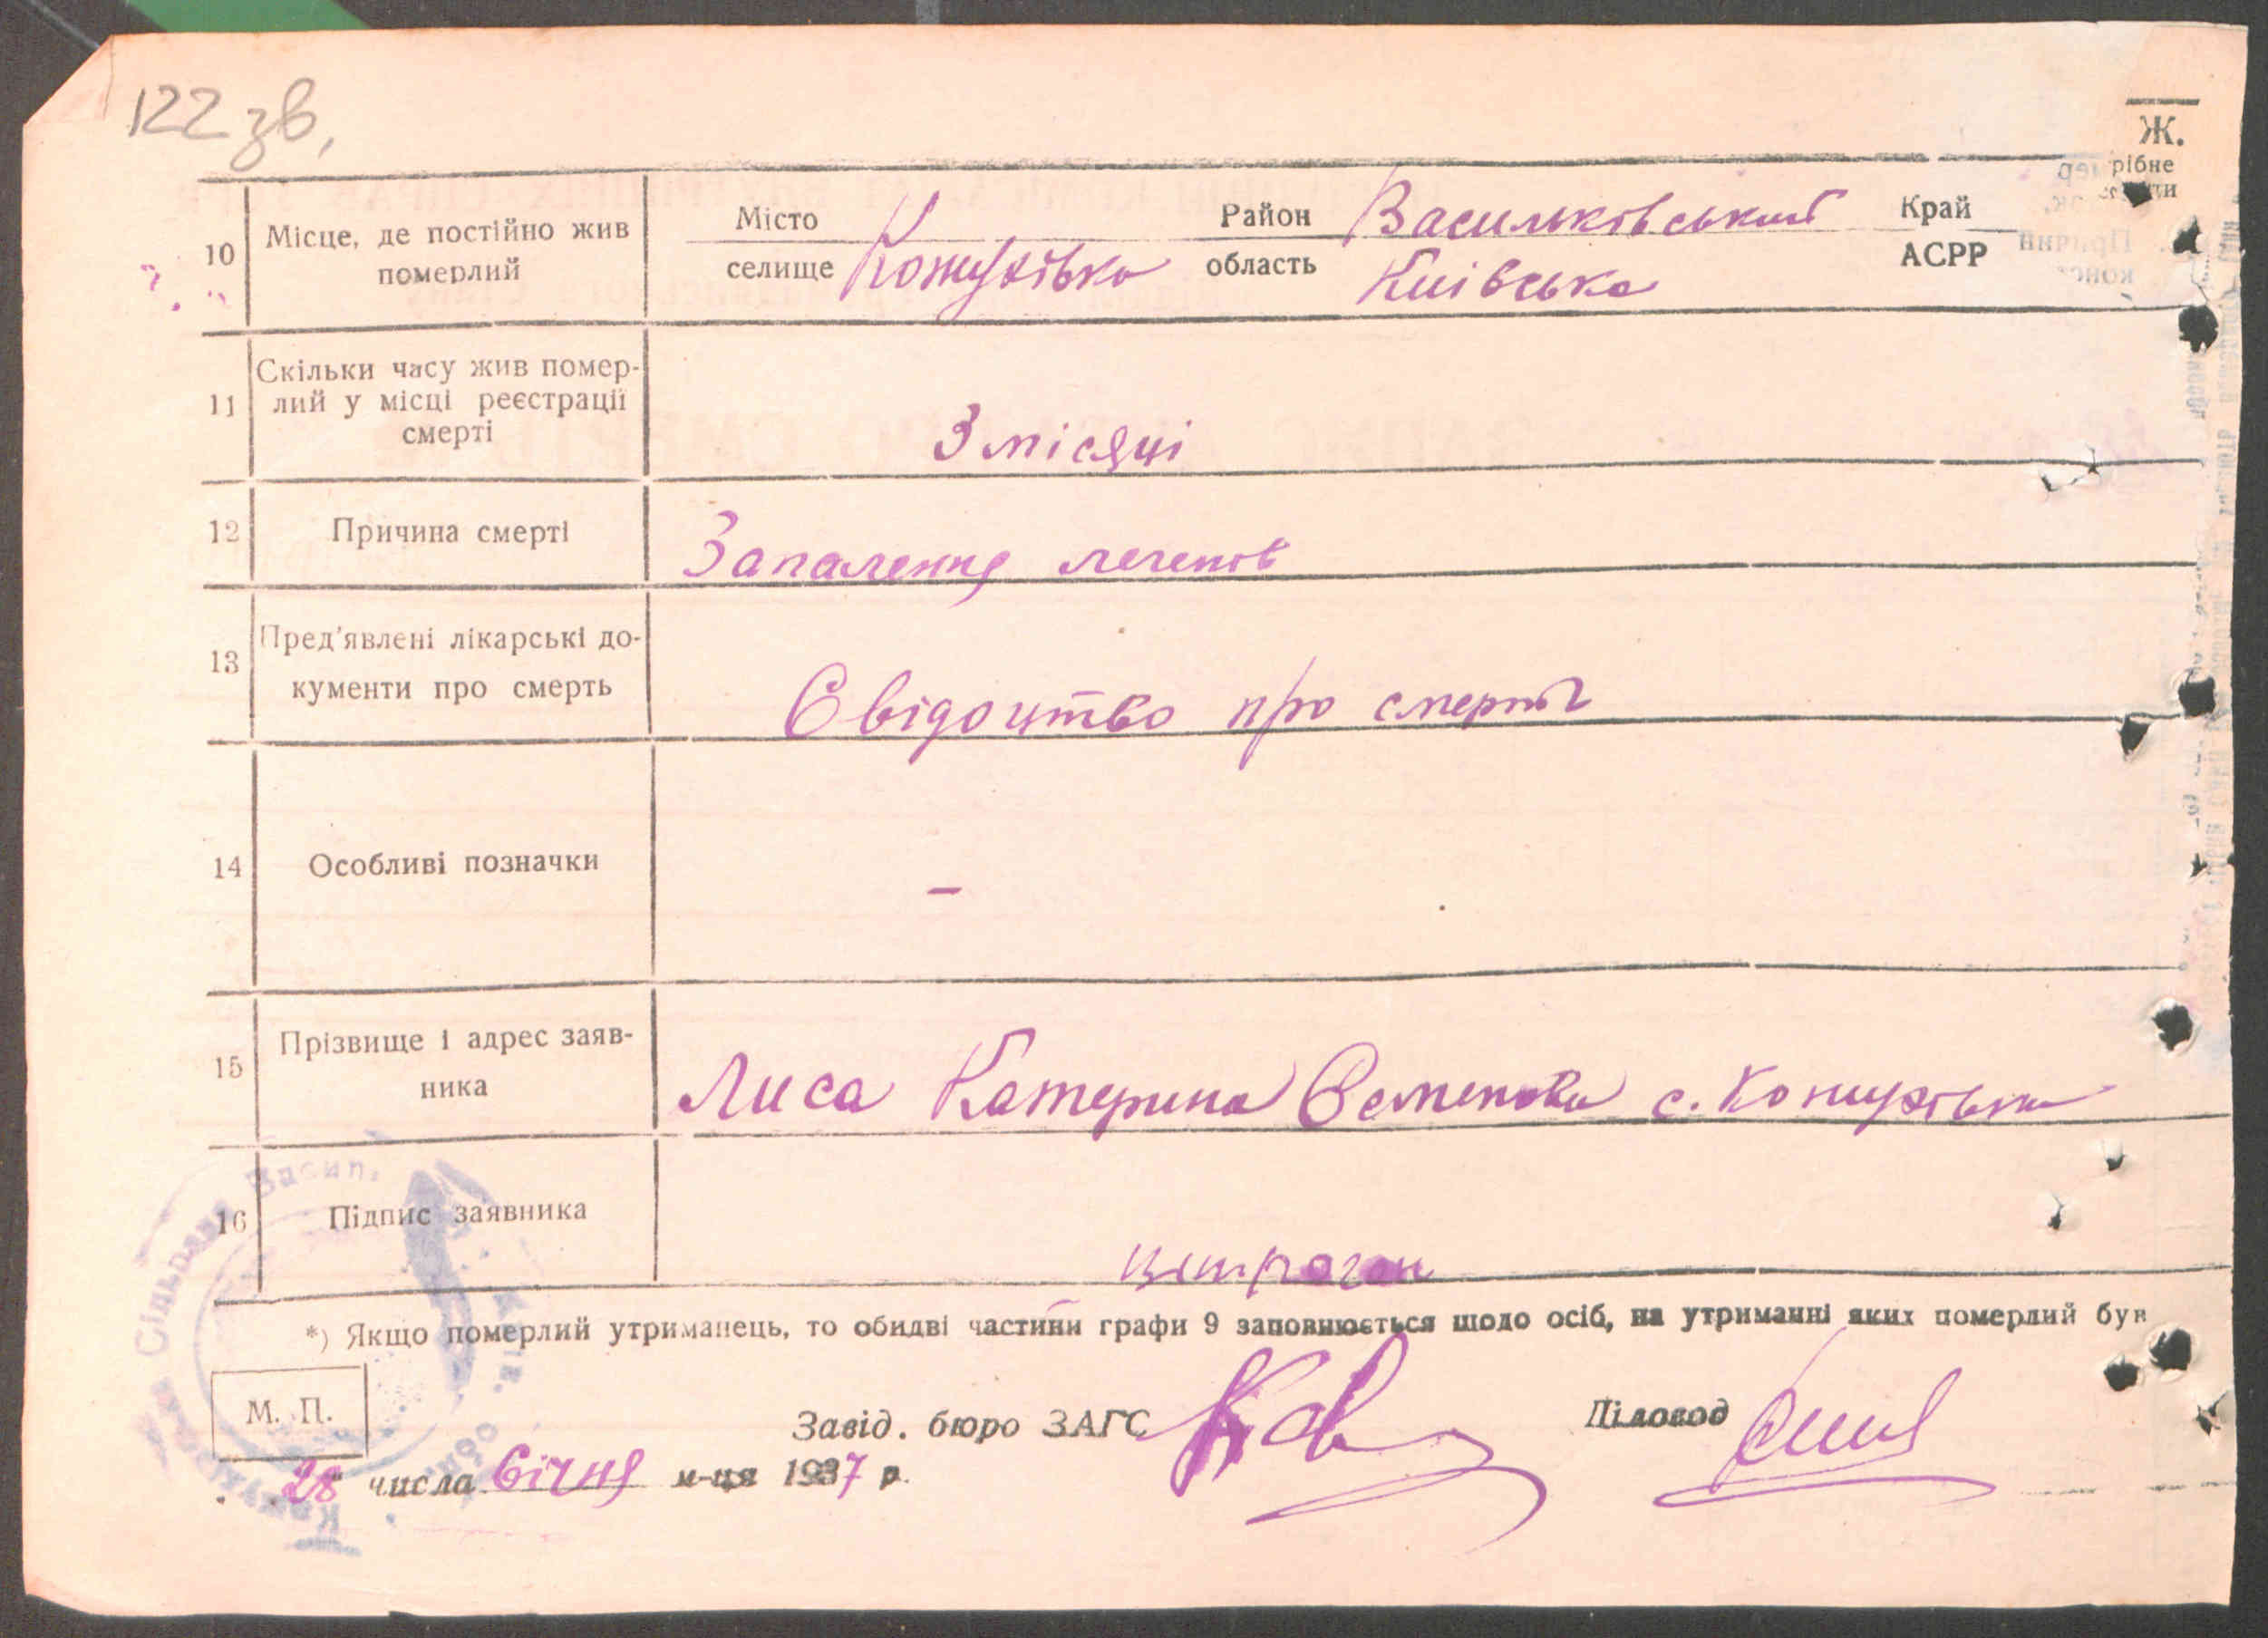 122 зв.
Ж.
рібне
10 Місце, де постійно жив померлий
Місто
селище Кожухівка
Район Васильківський
область Київська
Край
АСРР
11 Скільки часу жив помер-
лий у місці реєстрації
смерті
3 місяці
12 Причина смерті
Запалення легенів
13 Пред'явлені лікарські до-
кументи про смерть
Свідоцтво про смерть
14 Особливі позначки
—
15 Прізвище і адрес заяв-
ника
Лиса Катерина Семенова с. Кожухівка
16 Підпис заявника
*) Якщо померлий утриманець, то обидві частини графи 9 заповнюється щодо осіб, на утриманні яких померлий був
М. П.
Завід. бюро ЗАГС
Діловод
28 числа Січня м-ця 1937 р.